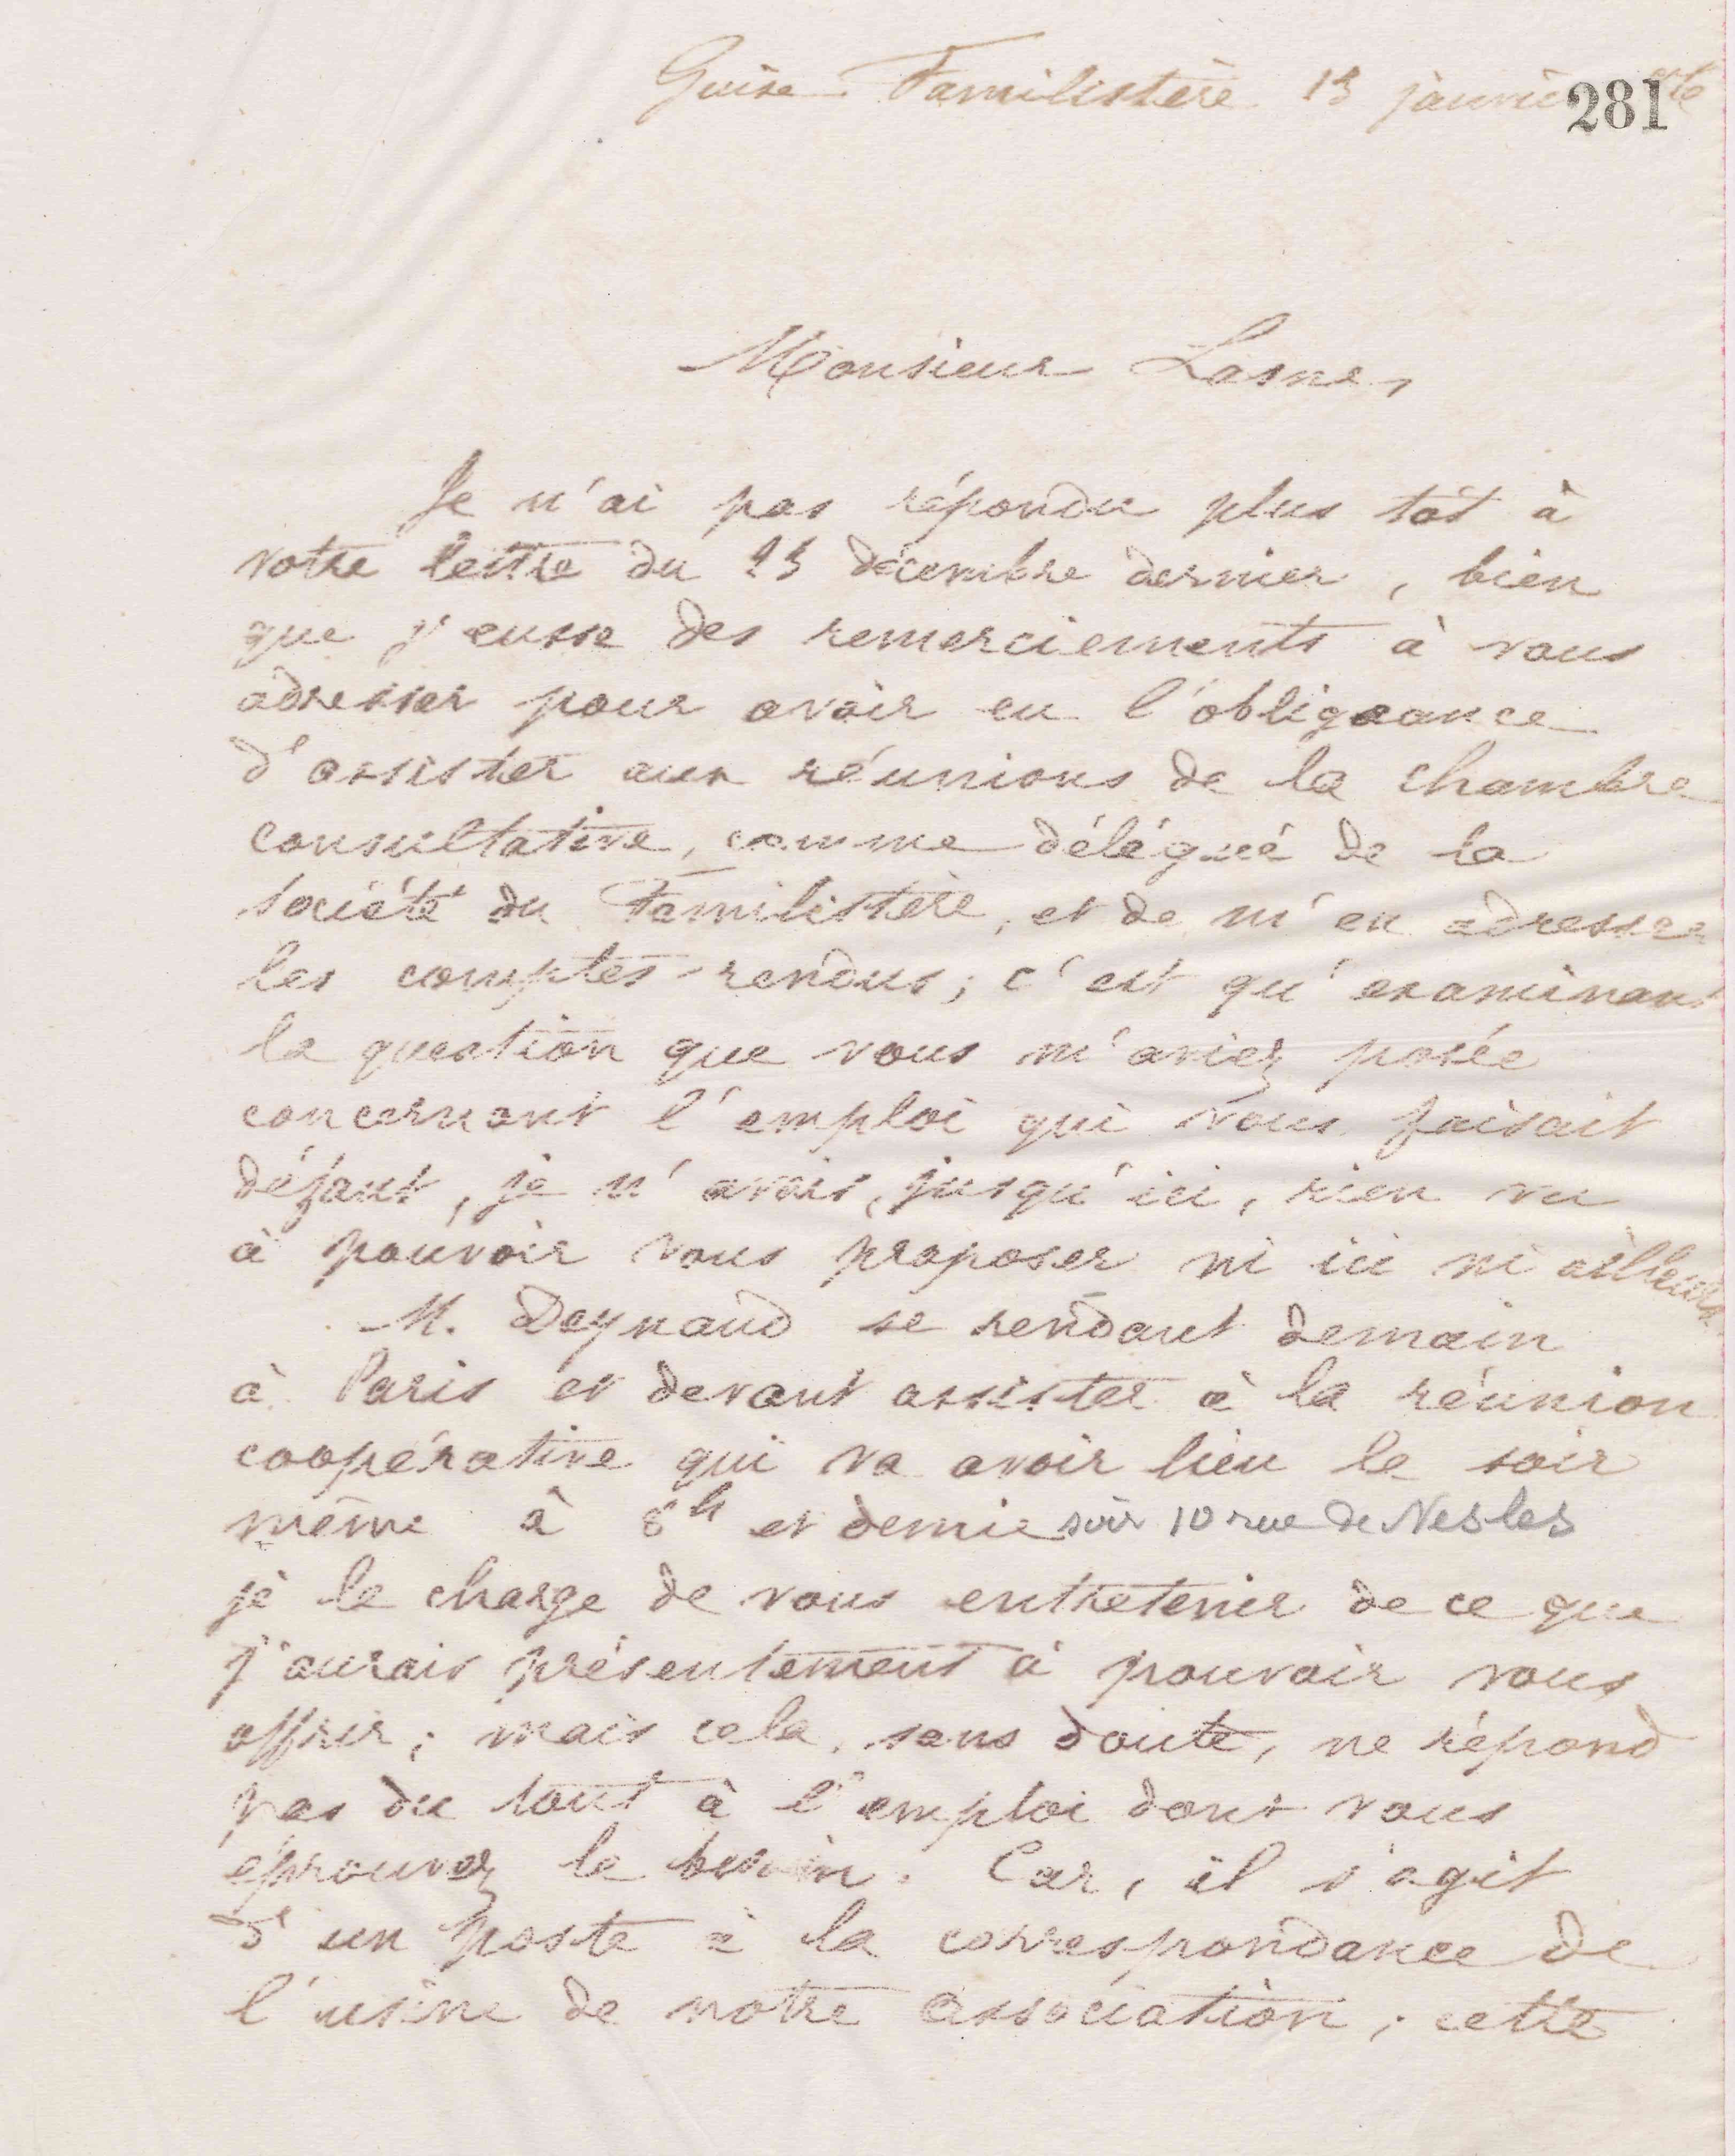 Guise Familistère 13 janvier
281
Monsieur Lasne,
Je n'ai pas répondu plus tôt à
votre lettre du décembre dernier, bien
que j'eusse des remerciements à vous
adresser pour avoir eu l'obligeance
d'assister aux réunions de la chambre
consultative, comme délégué de la
société du Familistère, et de m'en adresser
les comptes-rendus; c'est qu'examinant
la question que vous m'aviez posée
concernant l'emploi qui vous faisait
défaut, je n'avais, jusqu'ici, rien vu
à pouvoir vous proposer ni ici ni ailleurs.
M. Deynaud se rendant demain
à Paris et devant assister à la réunion
coopérative qui va avoir lieu le soir
même à 8h et demie soir 10 rue de Nesles
je le charge de vous entretenir de ce que
j'aurais présentement à pouvoir vous
offrir; mais cela, sans doute, ne répond
pas du tout à l'emploi dont vous
éprouvez le besoin. Car, il s'agit
d'un poste à la correspondance de
l'usine de notre association; cette